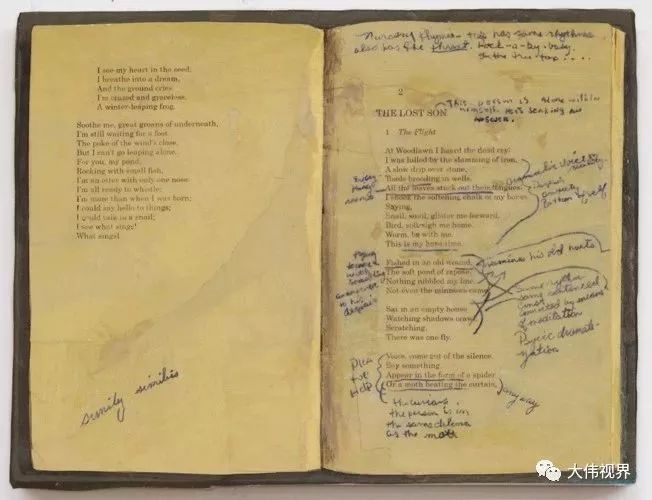 I see my heart in the seed;
I breathe into a dream,
And the ground cries.
I'm crazed and graceless,
A winter-leaping frog.
Soothe me, great groans of underneath,
I'm still waiting for a foot.
The poke of the wind's close,
But I can't go leaping alone.
For you, my pond,
Rocking with small fish,
I'm an otter with only one nose:
I'm all ready to whistle;
I'm more than when I was born;
I could say hello to things;
I could talk to a snail;
I see what sings!
What sings!
Nursery Rhymes - this has same rhythms
also has the threat. Rock-a-by-baby
In the tree top....
2
THE LOST SON
This person is alone within
himself. He's seeking an
answer.
1 The Flight
At Woodlawn I heard the dead cry:
I was lulled by the slamming of iron,
A slow drip over stone,
Toads brooding in wells.
All the leaves stuck out their tongues;
I shook the softening chalk of my bones,
Saying,
Snail, snail, glister me forward,
Bird, soft-sigh me home.
Worm, be with me.
This is my hard time.
Fished in an old wound,
The soft pond of repose;
Nothing nibbled my line,
Not even the minnows came.
examines his old hurts
Sat in an empty house
Watching shadows crawl,
Scratching.
There was one fly.
same rhythm
same sentences
of meditation
Psychic dramati-
zation
Voice, come out of the silence.
Say something.
Appear in the form of a spider
Or a moth beating the curtain.
Plea
for
Help
any way
the curtains.
the person is in
the same dilema
as the moth
大伟视界